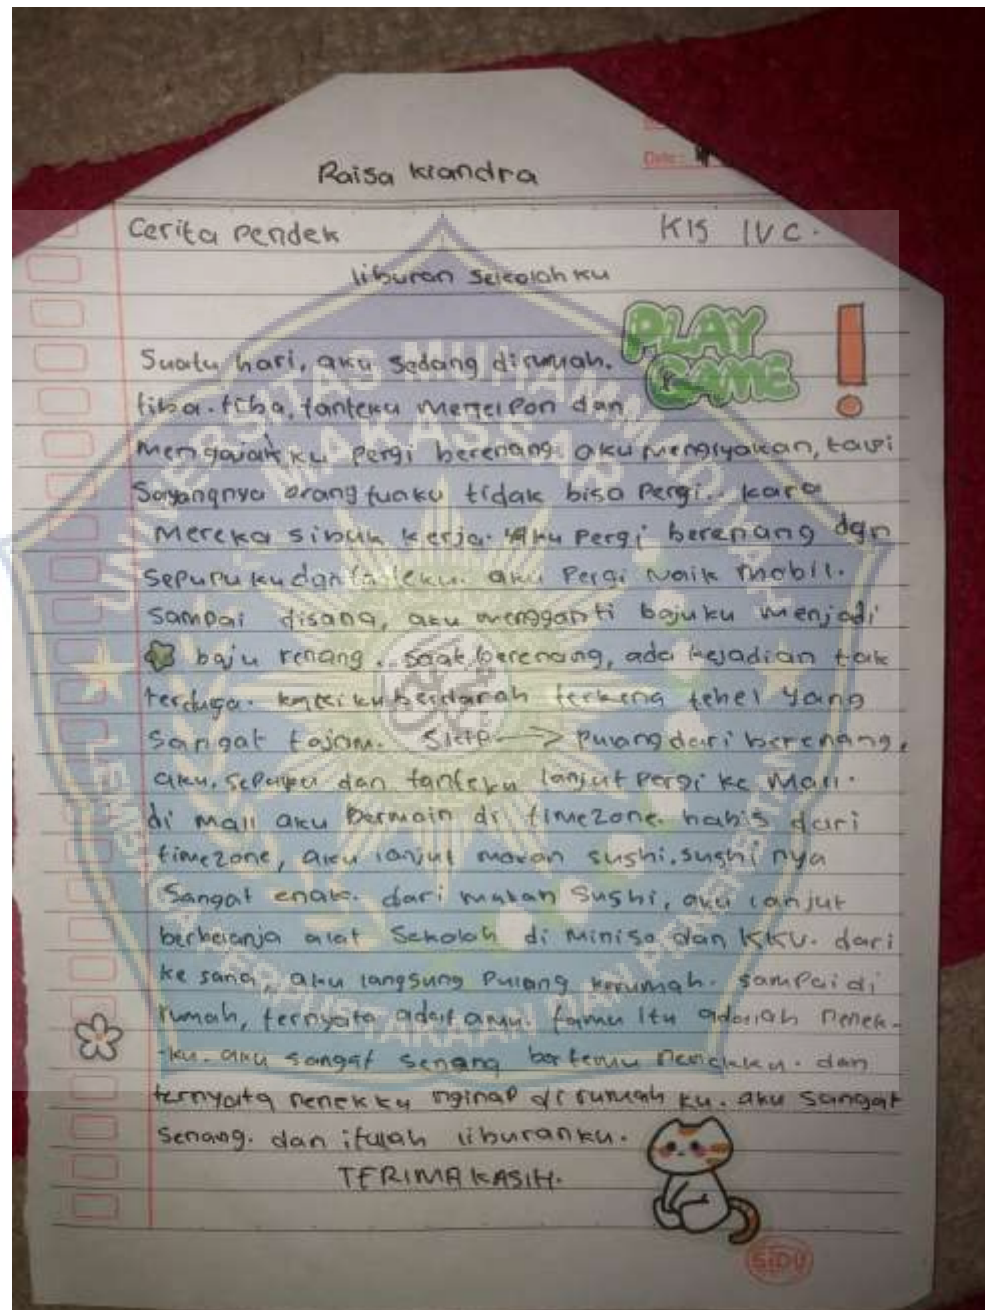 Date:
Raisa Kiandra
Cerita Pendek Kls IVC.
liburan sekolahku
PLAY
GAME
Suatu hari, aku sedang dirumah.
tiba-tiba, tanteku menelpon dan
mengajakku pergi berenang. aku mengiyakan, tapi
Sayangnya orang tuaku tidak bisa pergi.. kare
mereka sibuk kerja. Aku pergi berenang dgn
sepupuku dan tanteku. aku pergi naik mobil.
sampai disana, aku mengganti bajuku menjadi
baju renang. saat berenang, ada kejadian tak
terduga. kakiku berdarah terkena tehel yang
sangat tajam. Skip → pulang dari berenang,
aku, sepupu dan tanteku lanjut pergi ke mall.
di mall aku bermain di timezone. habis dari
timezone, aku lanjut makan sushi. sushi nya
Sangat enak. dari makan sushi, aku lanjut
berbelanja alat Sekolah di Miniso dan KKV. dari
ke sana, aku langsung pulang kerumah. sampai di
rumah, ternyata ada tamu. tamu itu adalah nenek-
-ku. aku sangat senang bertemu nenekku. dan
ternyata nenekku nginap di rumah ku. aku sangat
senang. dan itulah liburanku.
TERIMA KASIH.
SIDU
UNIVERSITAS MUHAMMADIYAH
MAKASSAR
LEMBAGA PERPUSTAKAAN DAN PENERBITAN